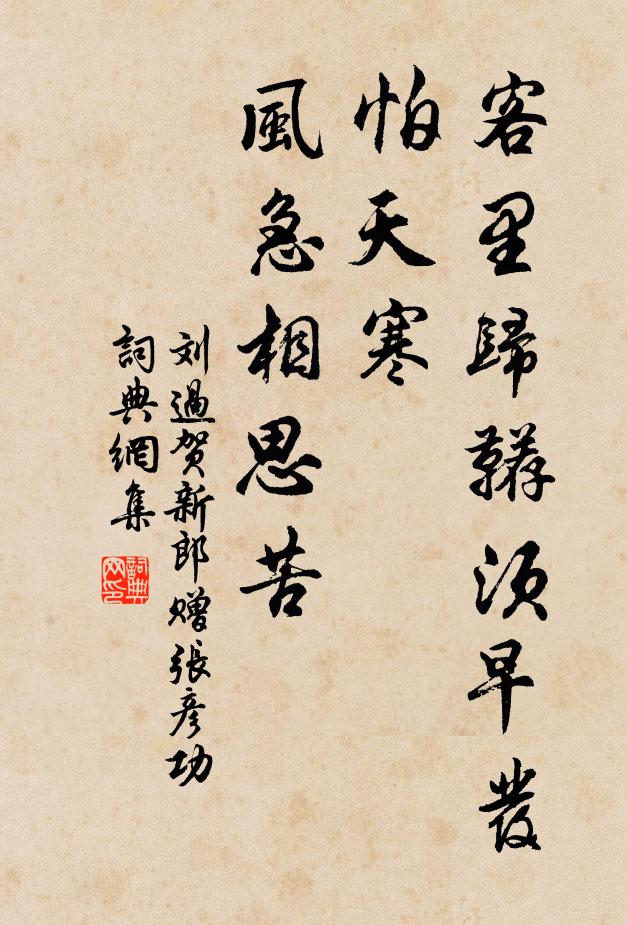 客里歸鞯須早發
怕天寒
風急相思苦
刘過贺新郎赠張彦功
詞典網集
詞典网印